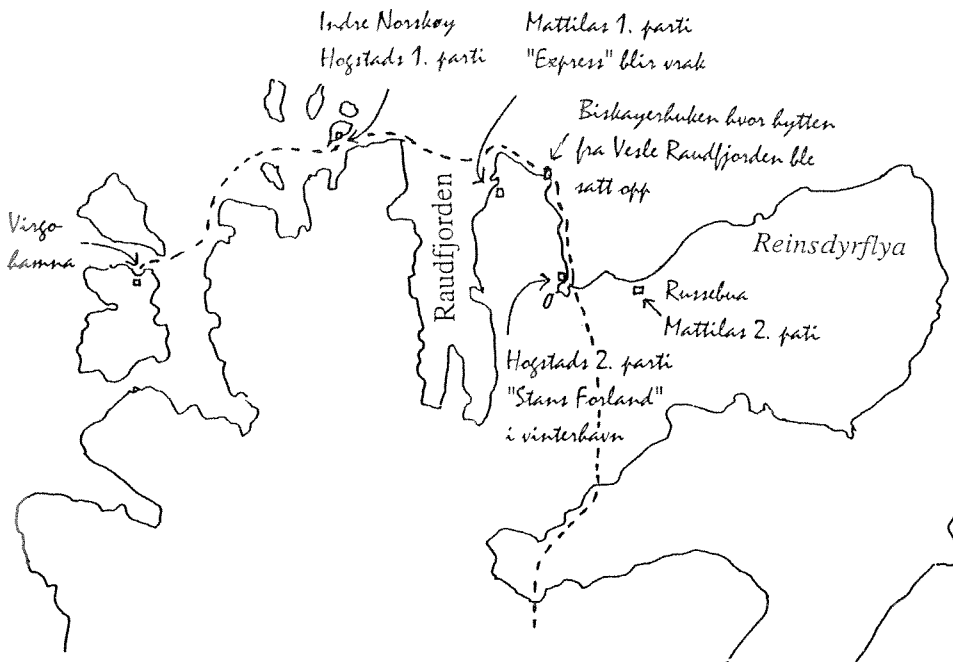 Indre Norskøy
Hogstads 1. parti
Mattilas 1. parti
"Express" blir vrak
Biskayerhuken hvor hytten
fra Vesle Raudfjorden ble
satt opp
Virgo
hamna
Raudfjorden
Reinsdyrflya
Russebua
Mattilas 2. pati
Hogstads 2. parti
"Stans Forland"
i vinterhavn